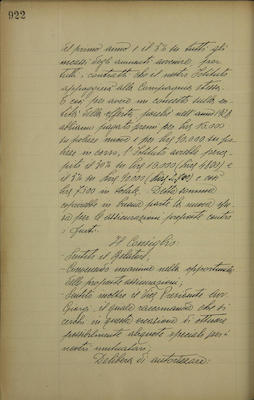 922
del primo anno e il 3% su tutti gli
incassi degli annunati avvenire, per
tutti i contratti che il nostro Istituto
appoggerà alla Compagnia stessa.
E ciò per avere in concreto nella
della offerta, perchè nell'anno 1928
abbiamo pagato premi per lire 15.000
su polizze nuove e per lire 90.000 su po-
lizze in corso, l'Istituto avrebbe perce-
pito il 30% su lire 15.000 (lire 4.500) e
il 3% su lire 90.000 (lire 2.700) e cioè
lire 7.200 in totale. Detta somma
coprirebbe in buona parte la nuova spe-
sa per le assicurazioni proposte contro
i furti.
Il Consiglio:
- Sentito il Relatore,
- Convenendo unanime nella opportunità
delle proposte assicurazioni,
- Sentito inoltre il Vice Presidente
il quale raccomanda che si
cerchi in questa occasione di ottenere
possibilmente aliquote speciali per i
nostri mutuatari,
Delibera di autorizzare